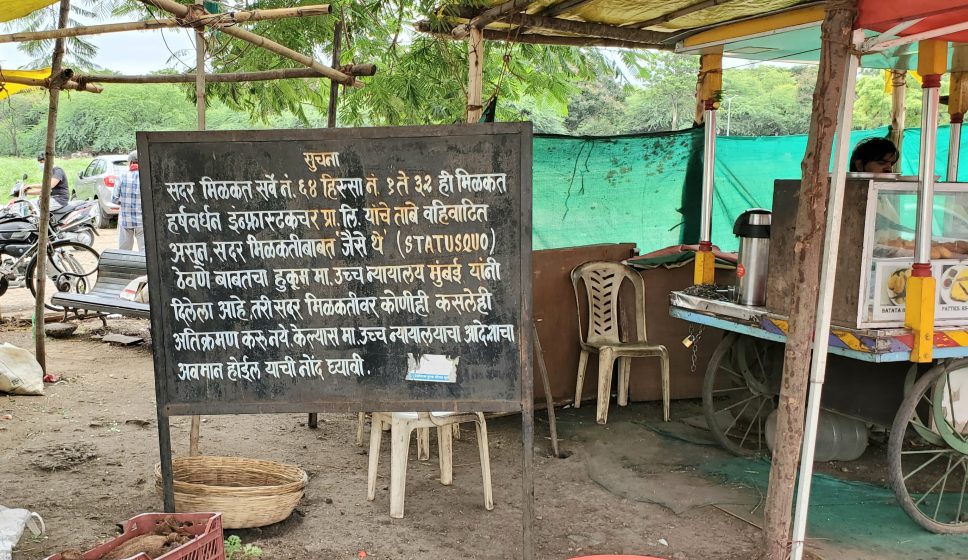 सुचना
सदर मिळकत सर्वे नं. ६४ हिस्सा नं. १ ते ३२ ही मिळकत
हर्षवर्धन इन्फ्रास्टक्चर प्रा.लि. यांचे ताबे वहिवाटित
असुन सदर मिळकतीबाबत जैसे थे (STATUSQUO)
ठेवणे बाबतचा हुकूम मा. उच्च न्यायालय मुंबई यांनी
दिलेला आहे. तरी सदर मिळकतीवर कोणीही कसलेही
अतिक्रमण करू नये केल्यास मा. उच्च न्यायालयाचा आदेशाचा
अवमान होईल याची नोंद घ्यावी.
BATATA
PATTIES